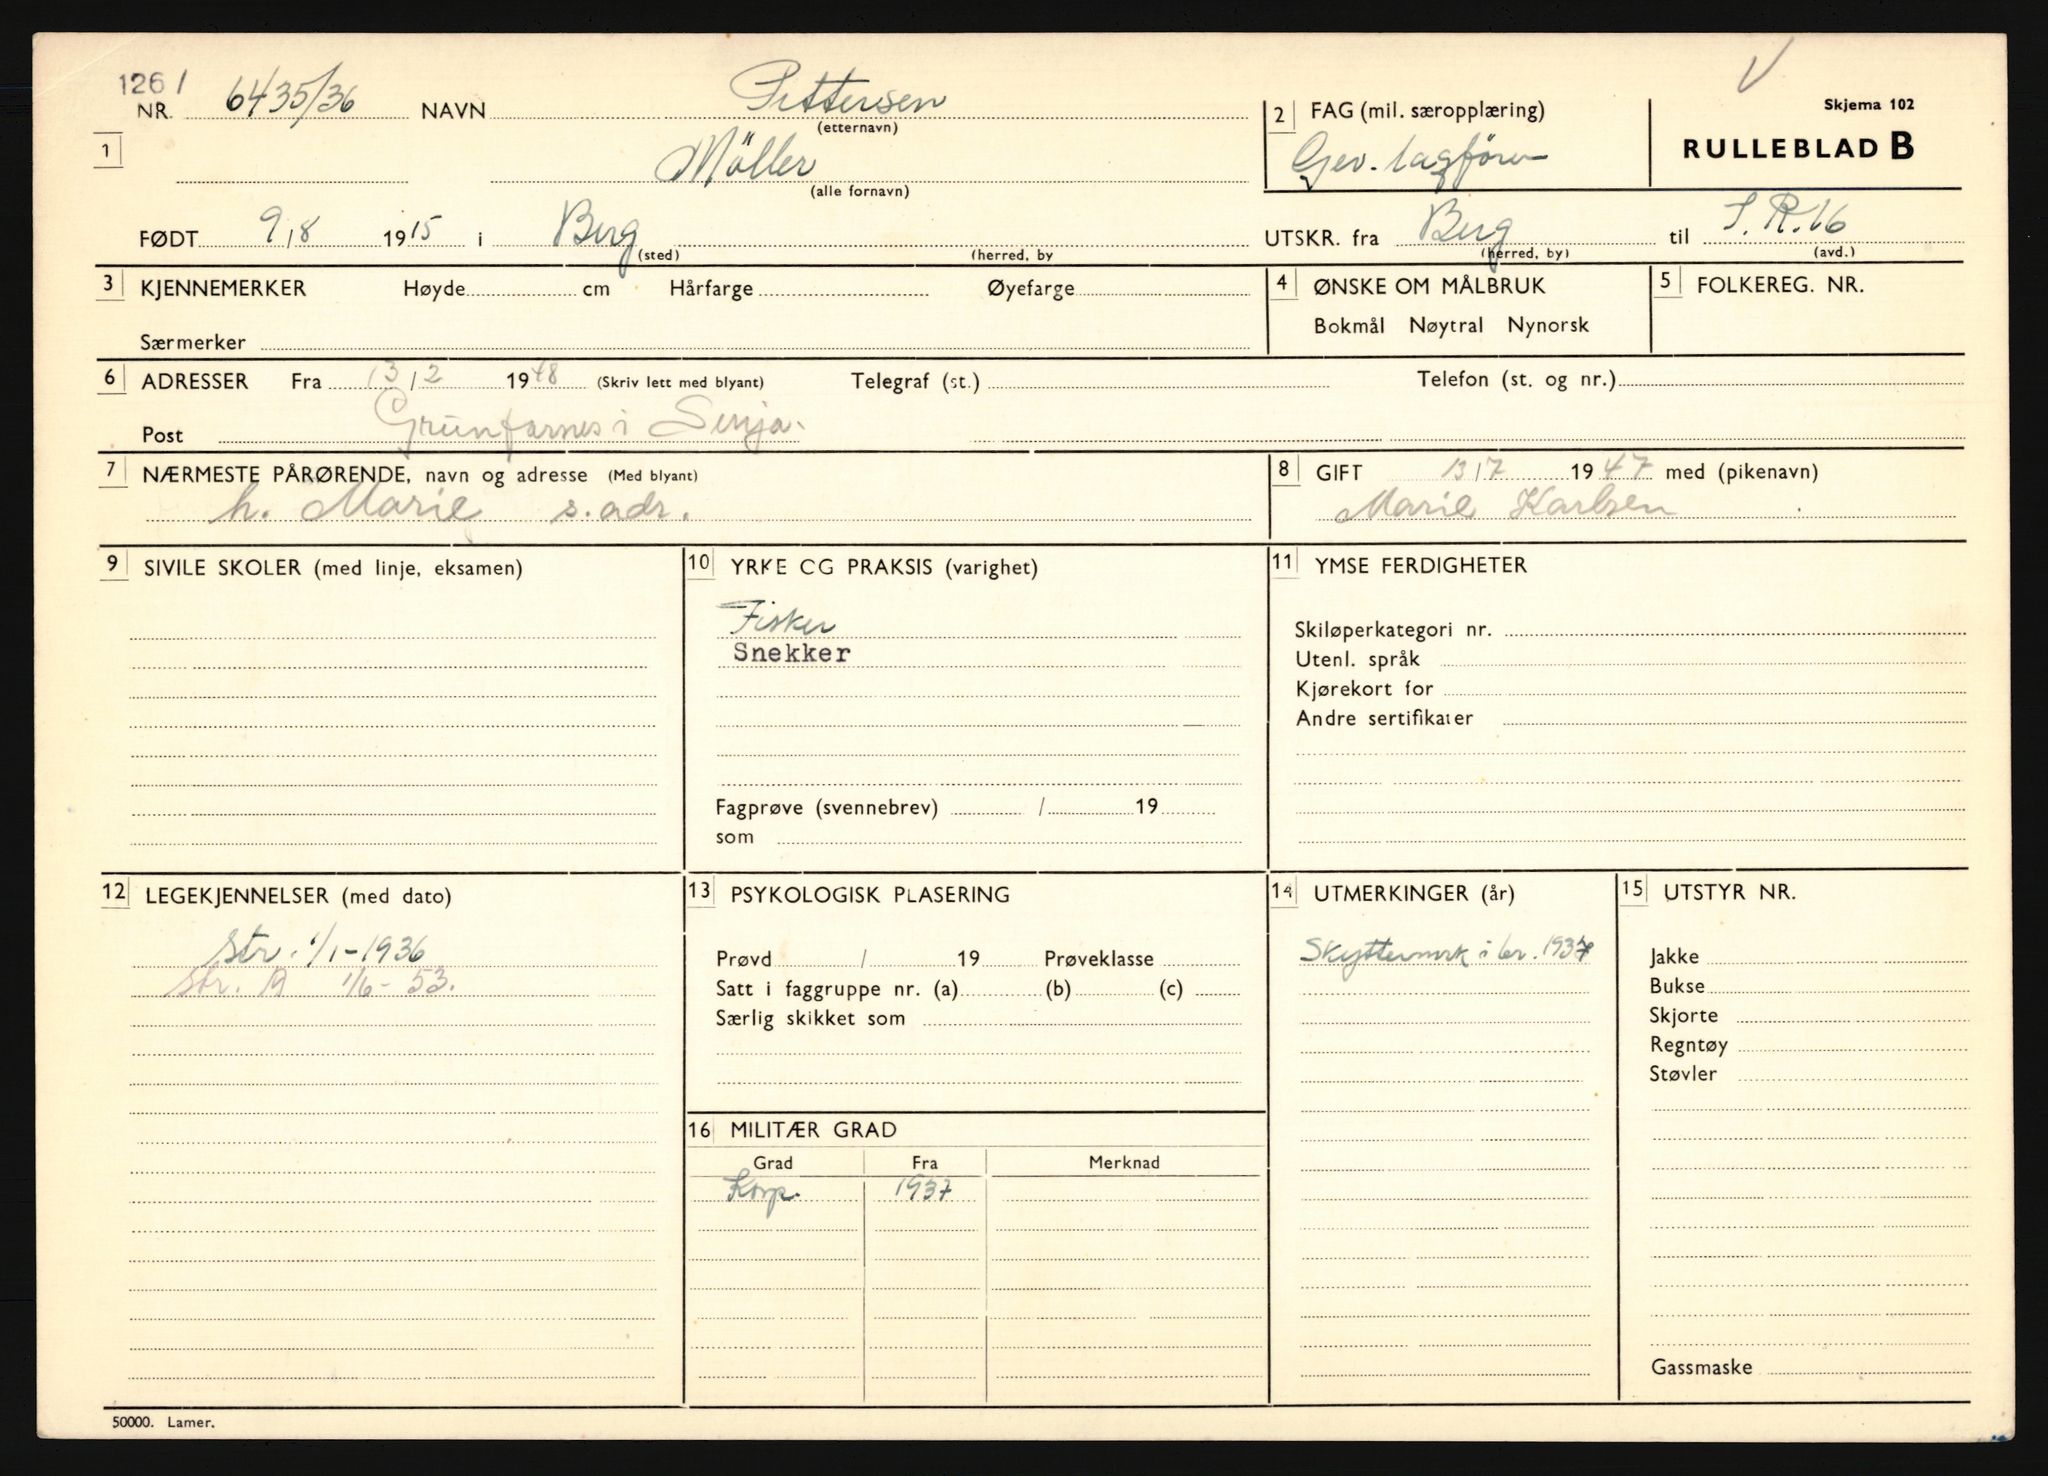 1261
NR. 6435/36 NAVN Pettersen
(etternavn)
1 Möller
(alle fornavn)
2 FAG (mil. særopplæring)
Gev. lagförer
Skjema 102
RULLEBLAD B
FØDT 9/8 1915 i Berg
(sted) (herred, by
UTSKR. fra Berg til I.R.16
(herred, by) (avd.)
3 KJENNEMERKER Høyde cm Hårfarge Øyefarge
Særmerker
4 ØNSKE OM MÅLBRUK
Bokmål Nøytral Nynorsk
5 FOLKEREG. NR.
6 ADRESSER Fra 13/2 1948 (Skriv lett med blyant) Telegraf (st.) Telefon (st. og nr.)
Post Grunfarnes i Senja.
7 NÆRMESTE PÅRØRENDE, navn og adresse (Med blyant)
h. Marie s. adr.
8 GIFT 13/7 1947 med (pikenavn)
Marie Karlsen
9 SIVILE SKOLER (med linje, eksamen)
10 YRKE CG PRAKSIS (varighet)
Fisker
Snekker
Fagprøve (svennebrev) / 19
som
11 YMSE FERDIGHETER
Skiløperkategori nr.
Utenl. språk
Kjørekort for
Andre sertifikater
12 LEGEKJENNELSER (med dato)
Str. 1/1-1936
Str. A 1/6-53.
13 PSYKOLOGISK PLASERING
Prøvd / 19 Prøveklasse
Satt i faggruppe nr. (a) (b) (c)
Særlig skikket som
14 UTMERKINGER (år)
Skyttermrk i br. 1937
15 UTSTYR NR.
Jakke
Bukse
Skjorte
Regntøy
Støvler
Gassmaske
16 MILITÆR GRAD
Grad Fra Merknad
Korp. 1937
50000. Lamer.